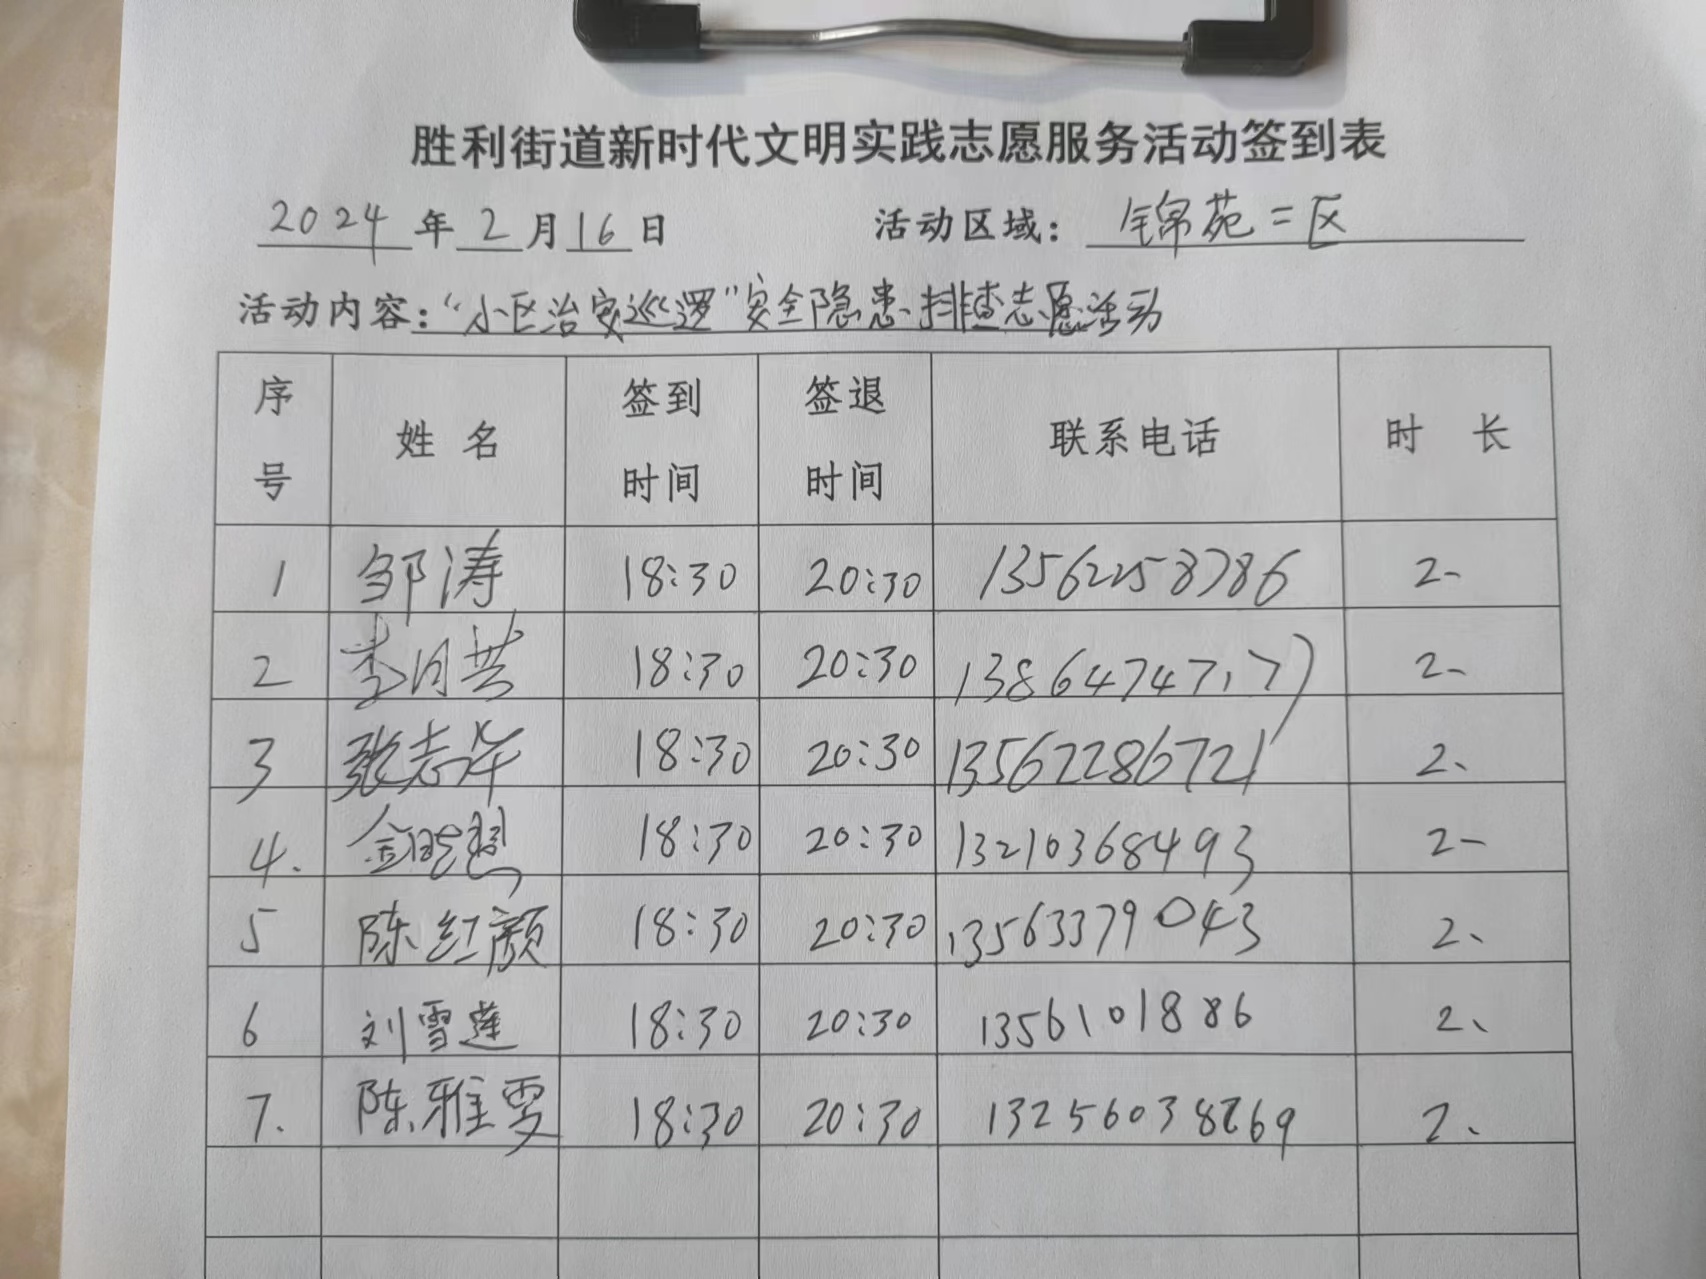 胜利街道新时代文明实践志愿服务活动签到表
2024年2月16日 活动区域：锦苑二区
活动内容："小区治安巡逻"安全隐患排查志愿活动
序号 姓名 签到时间 签退时间 联系电话 时长
1 邹涛 18:30 20:30 13562258786 2
2 李月芸 18:30 20:30 2
3 张志华 18:30 20:30 13562286721 2、
4. 金晓 18:30 20:30 13210368493 2
5 陈红颜 18:30 20:30 13563379043 2、
6 刘雪莲 18:30 20:30 1356101886 2、
7. 陈雅雯 18:30 20:30 2、